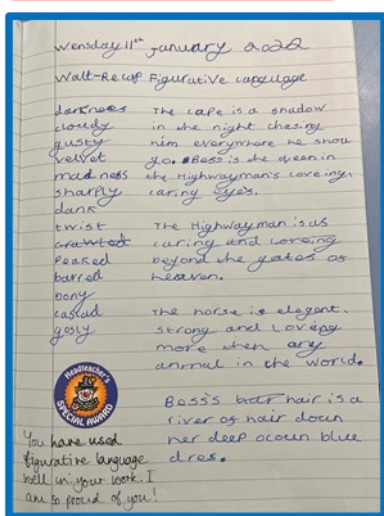 Wensday 11th January 2022
Walt-Recap Figurative language
darkness
cloudy
gusty
velvet
madness
sharply
dank
twist
crawled
Peaked
barred
bony
cascad
gosly
The cape is a shadow
in the night chasing
him everywhere he shou
go. Bess is the queen in
the Highwayman's loveing,
caring eyes.
The Highwayman is us
caring and loveing
beyond the gates of
heaven.
The horse is elegent.
strong and loveing
more then any
anmal in the world.
Bess's hair is a
river of hair down
her deep ocoun blue
dres.
Headteacher's
SPECIAL AWARD
You have used
figurative language
well in your work. I
am so proud of you!